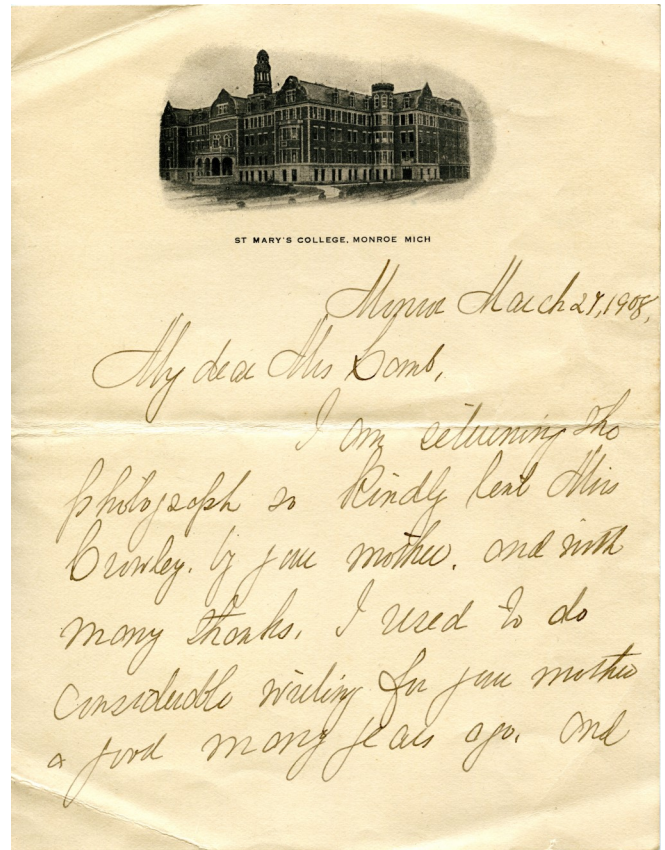 ST MARY'S COLLEGE, MONROE MICH
Monroe March 27, 1908,
My dear Mrs Comb,
I am returning the
photograph so kindly lent Mrs
Crowley. by your mother. and with
many thanks. I used to do
considerable writing for your mother
a good many years ago. and